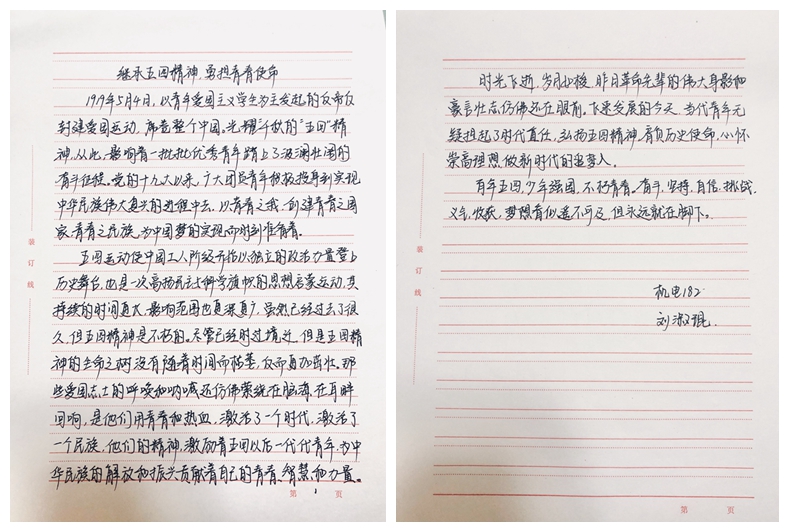 继承五四精神,勇担青春使命
1919年5月4日,以青年爱国主义学生为主发起的反帝反
封建爱国运动,席卷整个中国,光耀千秋的"五四"精
神,从此,影响着一批批优秀青年踏上了波澜壮阔的
奋斗征程。党的十九大以来,广大团员青年积极投身到实现
中华民族伟大复兴的进程中去,以青春之我,创建青春之国
家,青春之民族,为中国梦的实现而时刻准备着。
五四运动使中国工人阶级开始以独立的政治力量登上
历史舞台,也是一次高扬民主与科学旗帜的思想启蒙运动,其
持续的时间更久,影响范围也更深更广,虽然已经过去了很
久,但五四精神是不朽的。尽管已经时过境迁,但是五四精
神的生命之树没有随着时间而枯萎,反而更加茁壮。那
些爱国志士的呼唤和呐喊还仿佛萦绕在脑海,在耳畔
回响,是他们用青春和热血,激活了一个时代,激活了
一个民族,他们的精神,激励着五四以后一代代青年,为中
华民族的解放和振兴贡献着自己的青春、智慧和力量。
第 1 页
装
订
线
时光飞逝,岁月如梭,昨日革命先辈的伟大身影和
豪言壮志仿佛还在眼前。飞速发展的今天,当代青年无
疑担起了时代责任,弘扬五四精神,肩负历史使命,心怀
崇高理想,做新时代的追梦人。
百年五四,少年强国,不朽青春。奋斗,坚持,自信,挑战,
义气,收获,梦想看似遥不可及,但永远就在脚下。
机电182
刘淑琨
装
订
线
第 页